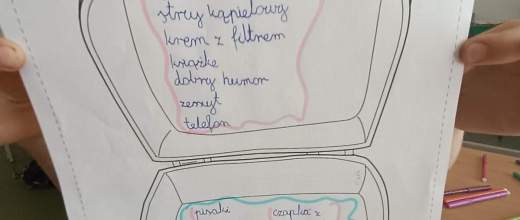 strój kąpielowy
krem z filtrem
książkę
dobry humor
zeszyt
telefon
pisaki czapka z